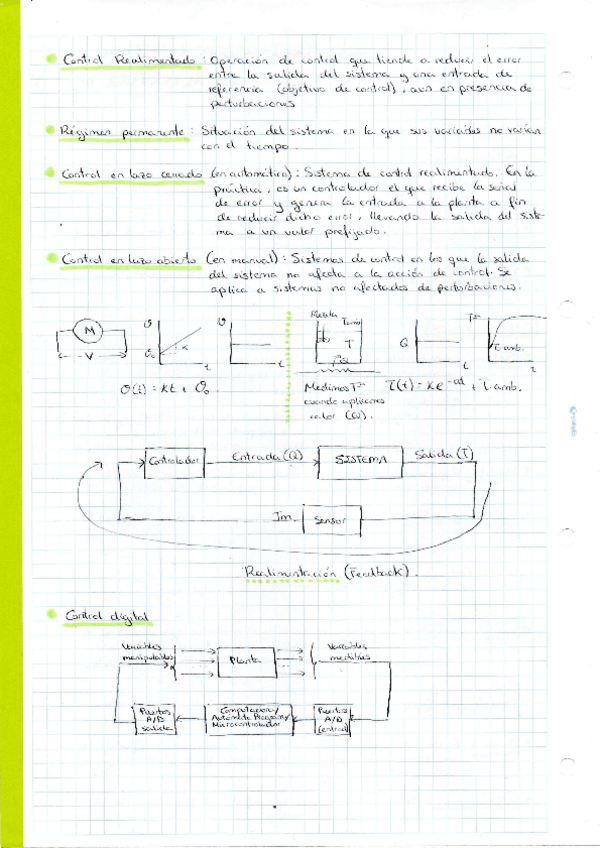 Control Realimentado : Operación de control que tiende a reducir el error
entre la salida del sistema y una entrada de
referencia (objetivo de control), aun en presencia de
perturbaciones
Régimen permanente : Situación del sistema en la que sus variables no varían
con el tiempo.
Control en lazo cerrado (en automático) : Sistema de control realimentado. En la
práctica, es un controlador el que recibe la señal
de error y genera la entrada a la planta a fin
de reducir dicho error, llevando la salida del siste-
ma a un valor prefijado.
Control en lazo abierto (en manual) : Sistemas de control en los que la salida
del sistema no afecta a la acción de control. Se
aplica a sistemas no afectados de perturbaciones.
M
V
t
t
T
Q
t
t
Medimos Tª
cuando aplicamos
calor (Q).
Controlador
Entrada (Q)
SISTEMA
Salida (T)
Tm
Sensor
Realimentación (Feedback).
Control digital
Variables
manipulables
Planta
Variables
medibles
Puertos
A/D
salida
Computador/
Microcontrolador
Puertos
A/D